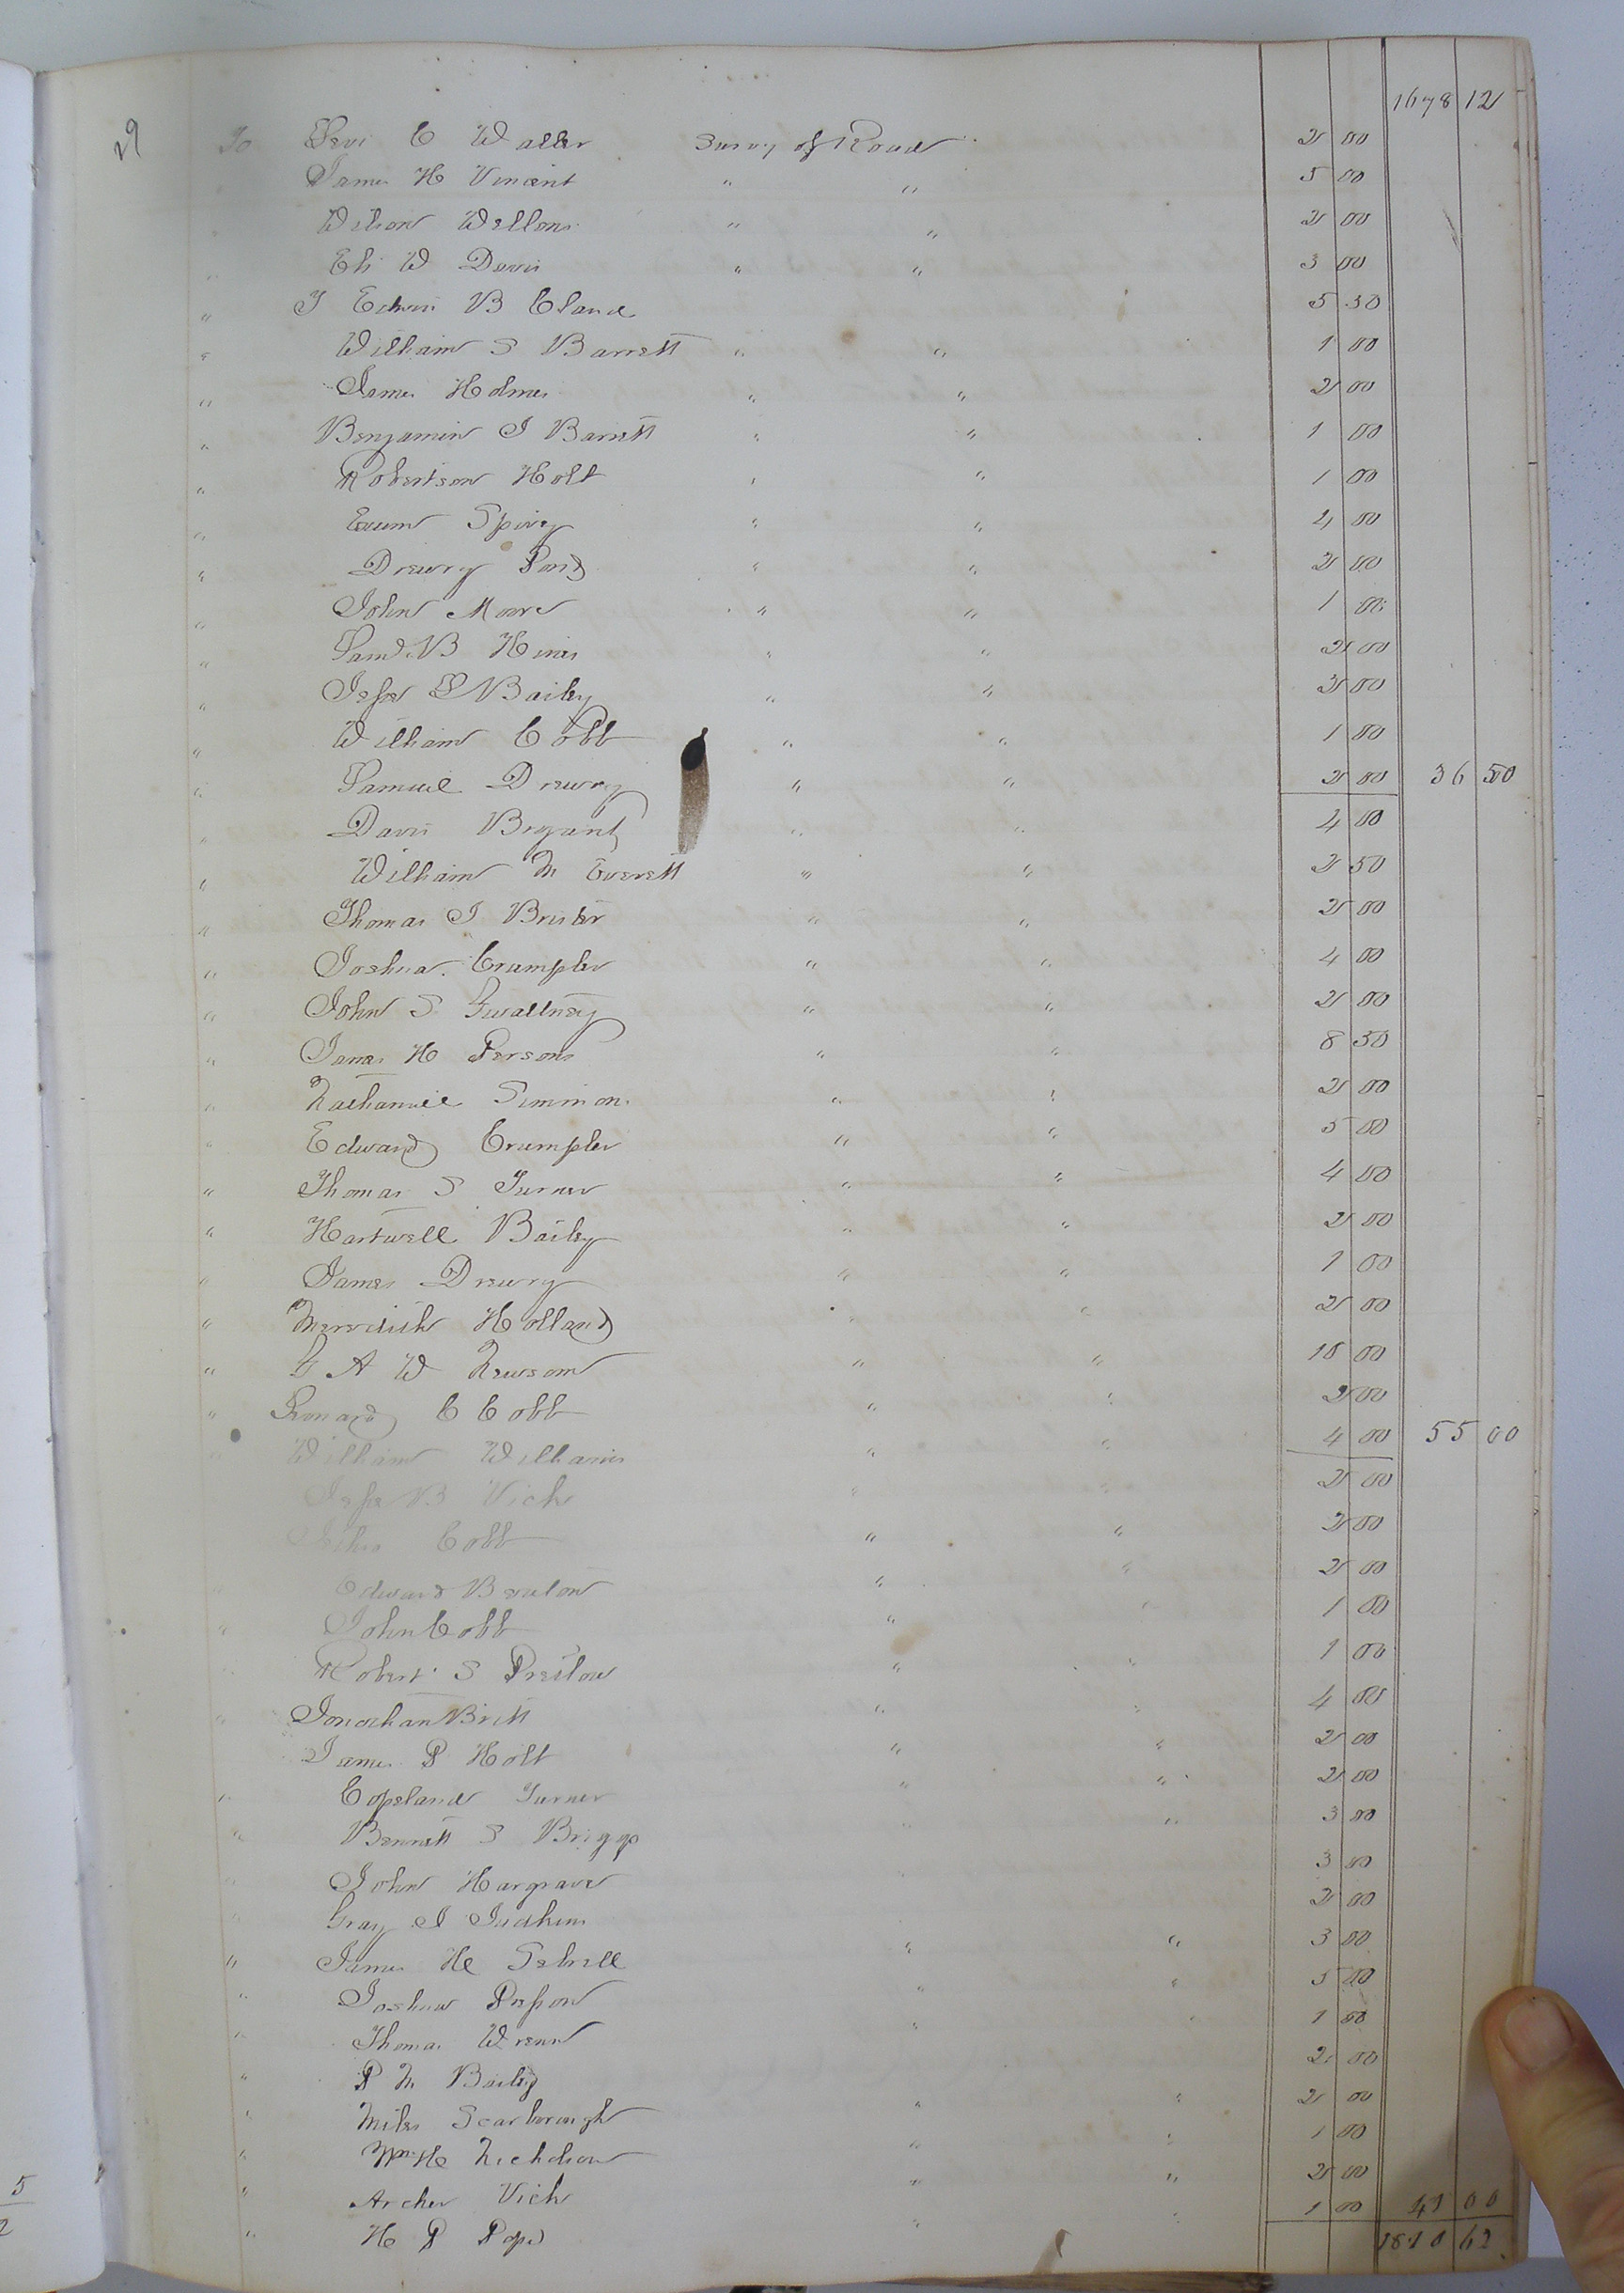 1678 12
29 To Levi C Waller Survey of Road 2 00
James H Vincent " " 5 00
" Wilson Wellons " " 2 00
" Eli W Davis " " 3 00
" T Edwin B Claud 5 50
" William S Barrett " " 1 00
" James Holmes " " 2 00
" Benjamin J Barrett " " 1 00
" Robertson Holt " " 1 00
" Exum Spivey " " 2 00
" Drewry Pond " " 2 00
" John Moore " " 1 00
" Saml B Hines " " 2 00
" Jesse L Bailey " " 3 00
" William Cobb " " 1 00
" Samuel Drewry " " 2 00 36 50
" Davis Bryant " " 4 00
" William N Everett " " 2 50
" Thomas J Brister " " 2 00
" Joshua Crumpler " " 4 00
" John S Gwaltney " " 2 00
" James H Persons " " 8 50
" Nathaniel Simmons " " 2 00
" Edward Crumpler " " 5 00
" Thomas S Turner " " 4 00
" Hartwell Bailey " " 2 00
" James Drewry " " 1 00
" Meredith Holland " " 2 00
" G A W Newsom " " 10 00
" Leonard C Cobb " " 2 00
" William Williams " " 4 00 55 00
Jesse B Vick " " 2 00
Cobb " " 2 00
Edward Beaton " " 2 00
" John Cobb " " 1 00
Robert S Pretlow " " 1 00
" Jonathan Britt " " 4 00
James P Holt " " 2 00
" Copeland Turner " " 2 00
" Bennett S Briggs " 3 00
" John Hargrave 3 00
" Gray J Judkins 2 00
" James H Sebrell " " 3 00
" Joshua Pope " " 5 00
" Thomas Wrenn " " 1 00
" P N Bailey 2 00
" Miles Scarborough " " 2 00
" Wm H Nicholson " " 1 00
" Archer Vick " " 2 00
" H P Pope " " 1 00 41 00
1810 62
5
2